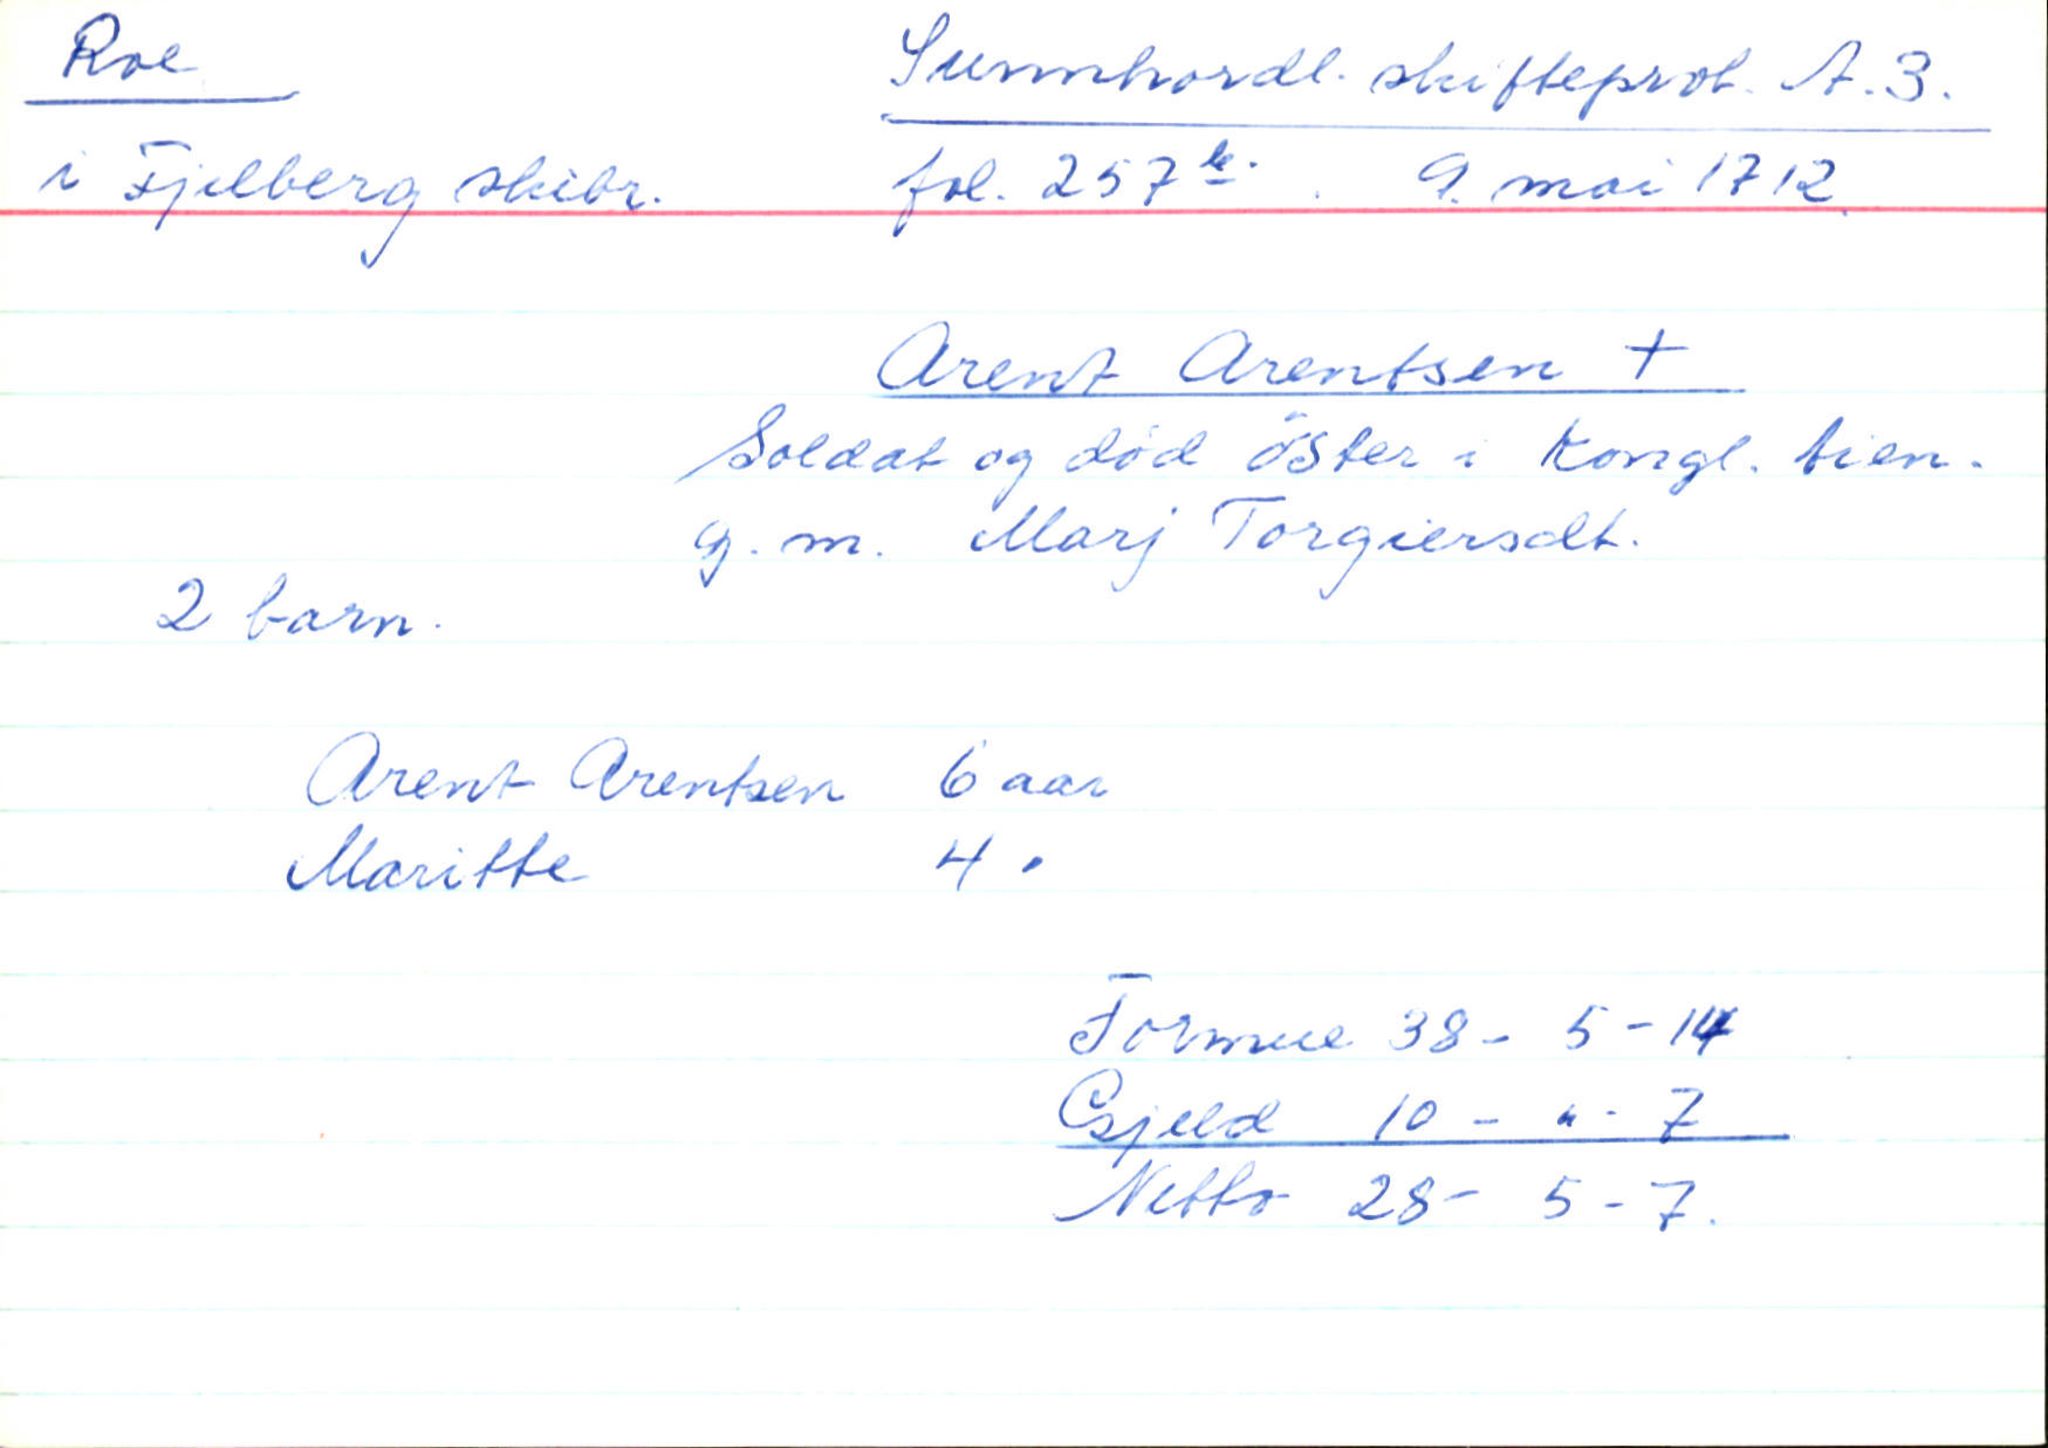 Roe
Sunnhordl. skifteprot. A.3.
i Fjelberg skibr.
fol. 257 b. 9. mai 1712.
Arent Arentsen +
Soldat og död öster i Kongl. tien.
g. m. Marj Torgiersdt.
2 barn.
Arent Arentsen 6 aar
Maritte 4 "
Formue 38 - 5 - 14
Gjeld 10 - " - 7
Netto 28 - 5 - 7.